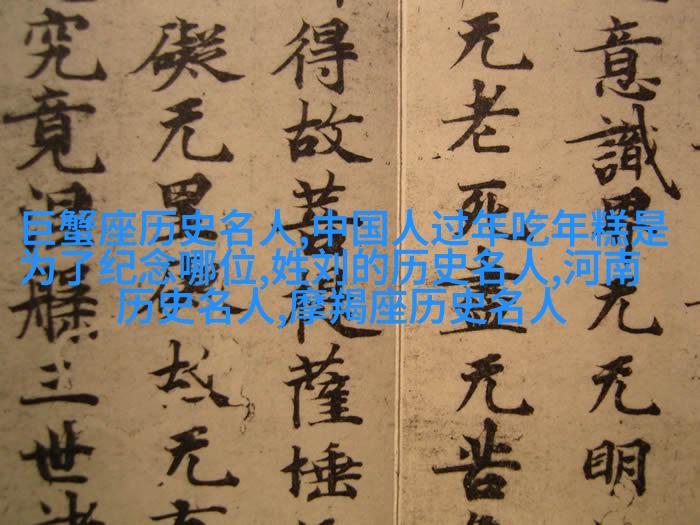 巨蟹座历史名人,中国人过年吃年糕是
为了纪念哪位,姓刘的历史名人,河南
历史名人,摩羯座历史名人
意識界无无明
无老死盡无苦
得故菩提薩埵
礙无罣礙故无有
究竟涅槃三世諸